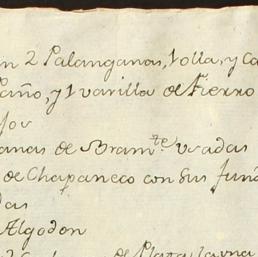 n 2 Palanganas, 1 olla, y Ca
Paño, y 1 varilla de Fierro
jos
anas de Bram.te usadas
de Chapaneco con sus fun
das
Algodon
de Platilla